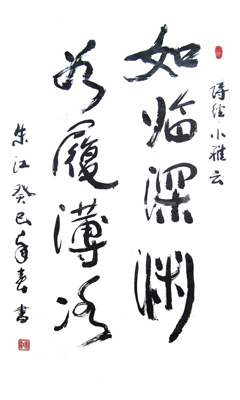 诗经小雅云
如临深渊
如履薄冰
朱江癸巳年春书